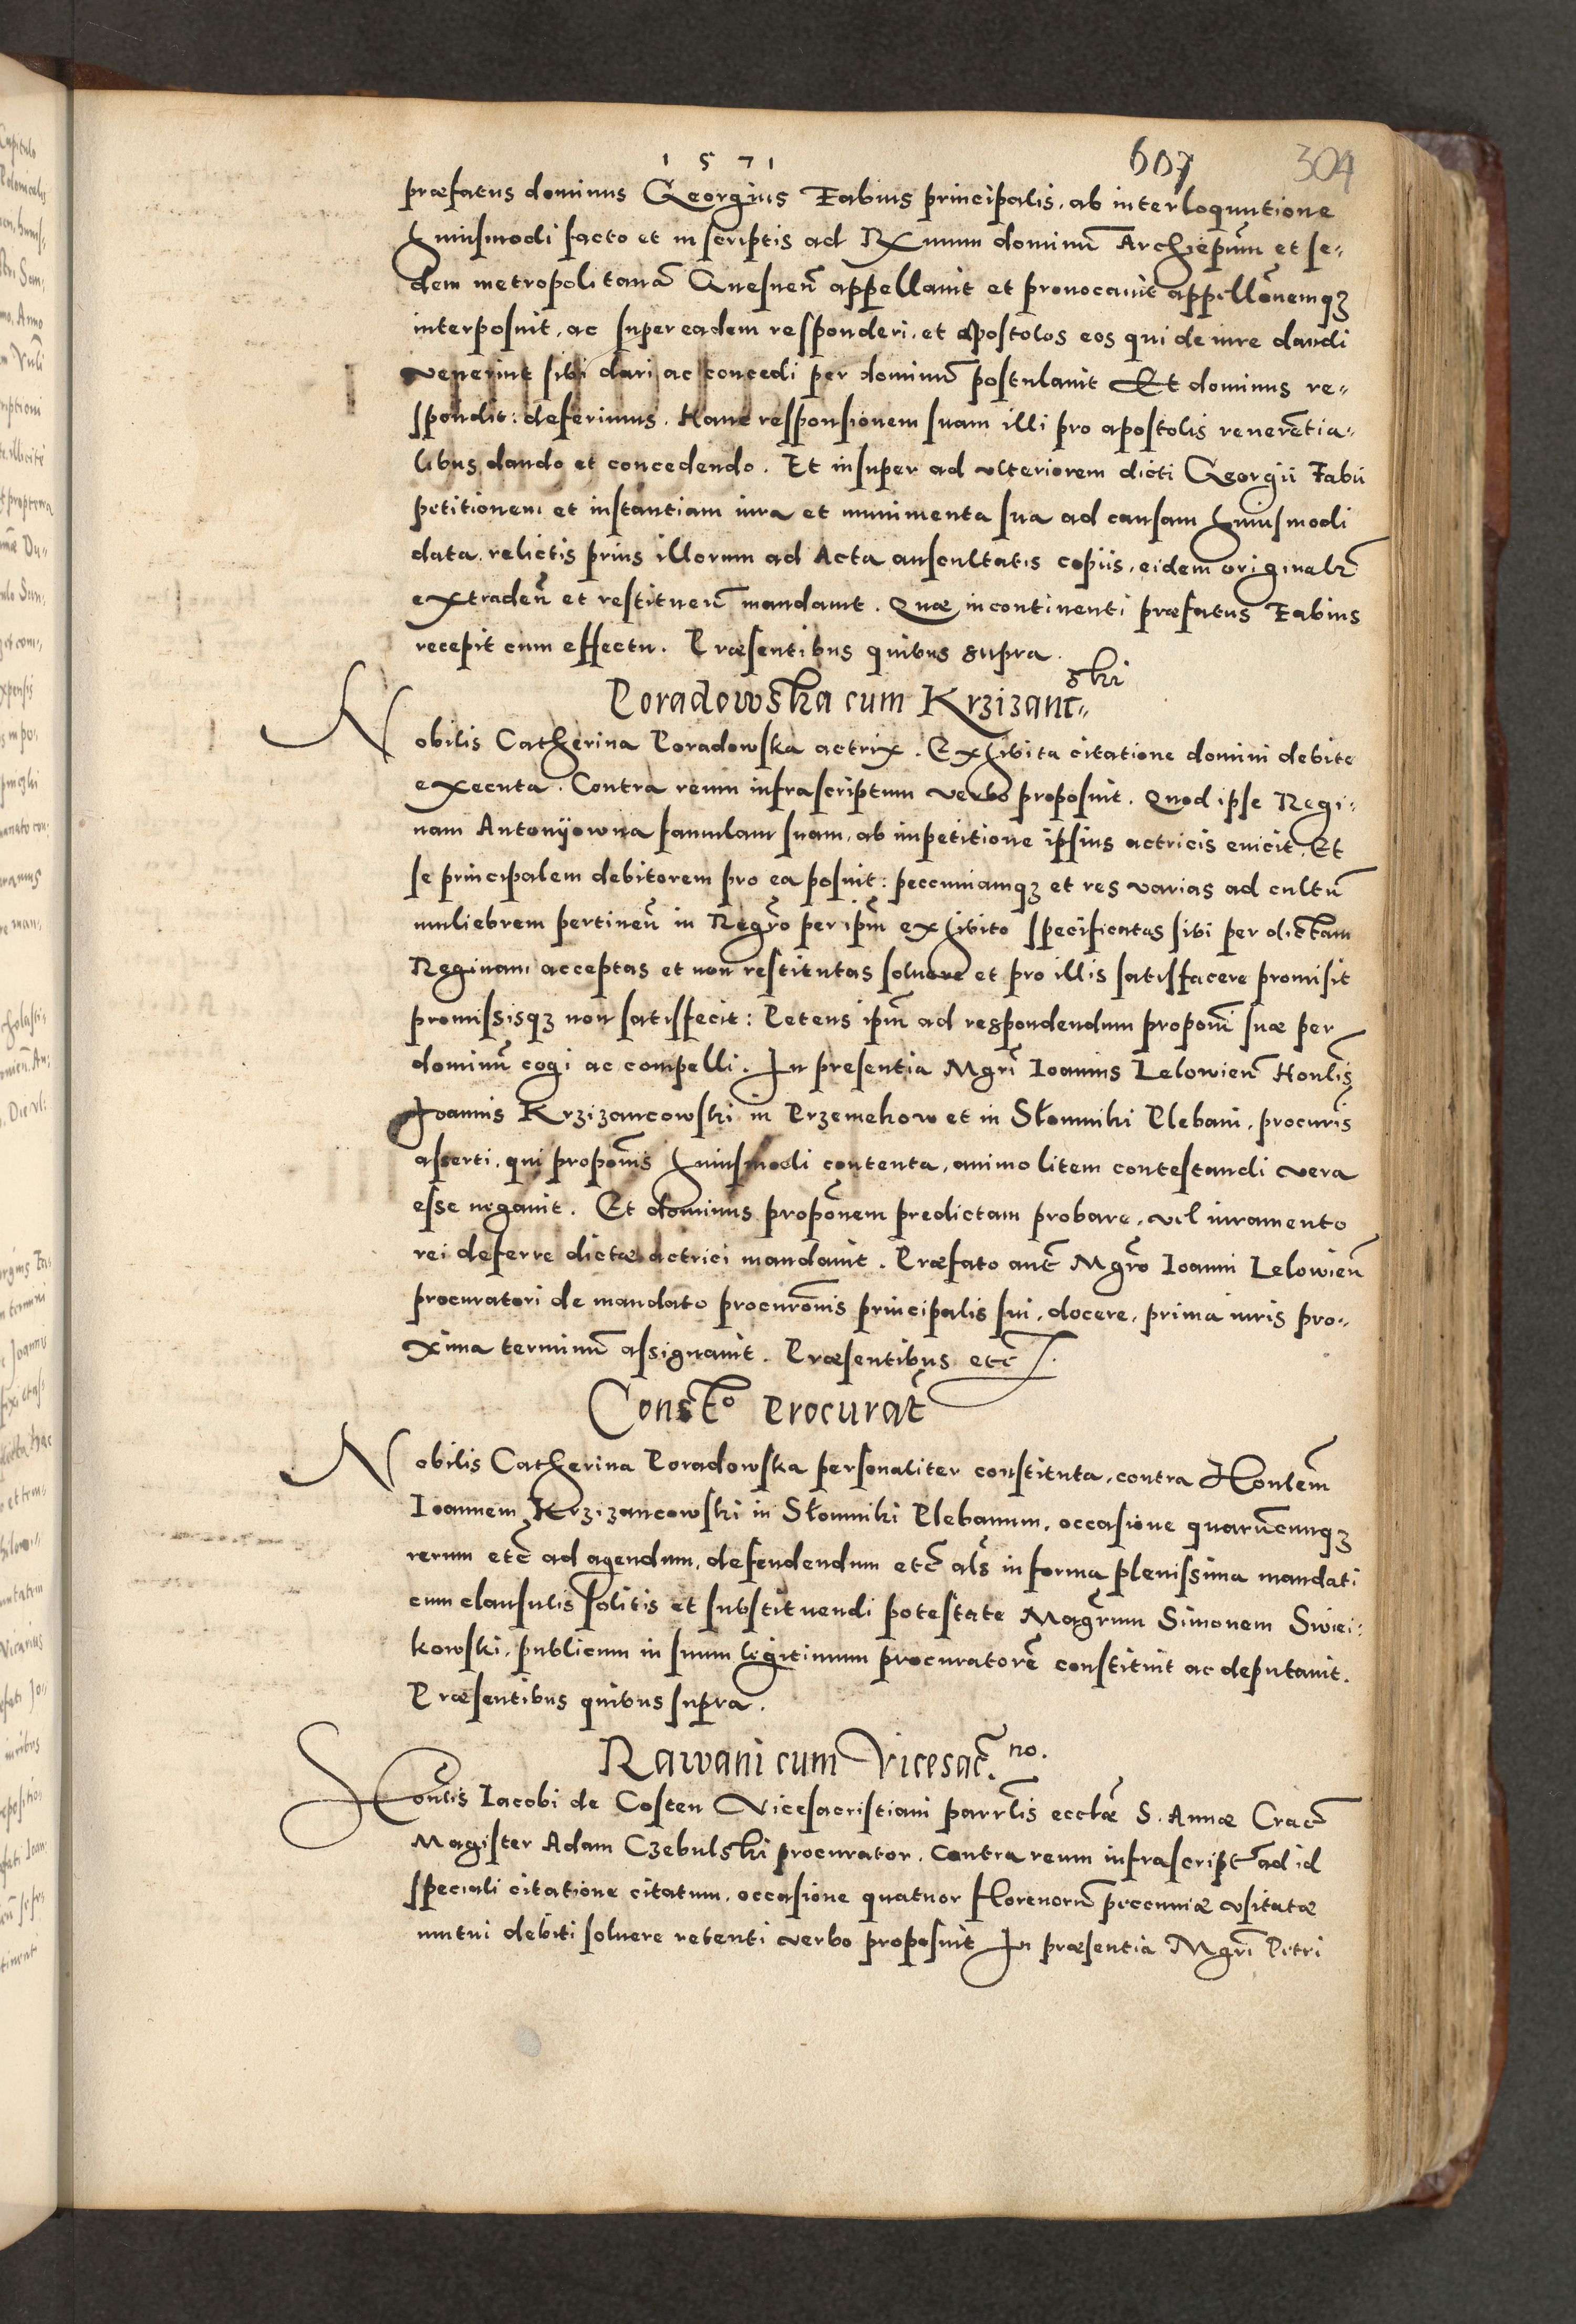 1571
607
304
præfatus dominus Georgius Fabius principalis, ab interloquutione
huiusmodi facto et in scriptis ad Rx mum dominū Archiepūm et se-
dem metropolitanā Gnesnen̄ appellauit et prouocauit appellōnemqꝫ
interposuit, ac super eadem responderi, et apostolos eos qui de iure dandi
venerint sibi dari ac concedi per dominū postulauit Et dominus re-
spondit: deferimus. Hanc responsionem suam illi pro apostolis reuerētia-
libus dando et concedendo. Et insuper ad vlteriorem dicti Georgii Fabii
petitionem et instantiam iura et munimenta sua ad causam huiusmodi
data, relictis prius illorum ad Acta auscultatis copiis, eidem originalr̄
extraden̄ et restituen̄ mandauit. Quæ incontinenti præfatus Fabius
recepit cum effectu. Præsentibus quibus supra.
Poradowska cum Krzizanc-ski
Nobilis Catherina Poradowska actrix. Exhibita citatione domini debite
executa. Contra reum infrascriptum verbo proposuit. Quod ipse Regi-
nam Antonijowna famulam suam, ab impetitione ipsius actricis euicit, Et
se principalem debitorem pro ea posuit: peccuniamqꝫ et res varias ad cultū
muliebrem pertinen̄ in Regr̄o per ipm̄ exhibito specificatas sibi per dictam
Reginam acceptas et non restitutas soluere et pro illis satisfacere promisit
promissisqꝫ non satisfecit: Petens ipm̄ ad respondendum proponi suæ per
dominū cogi ac compelli. In presentia Mgri Ioannis Lelowien̄ Honlis
Joannis Krzizancowski in Przemekow et in Słomniki Plebani, procuris
asserti, qui propōnis huiusmodi contenta, animo litem contestandi vera
esse negauit. Et dominus propōnem predictam probare, vel iuramento
rei deferre dictæ actrici mandauit. Præfato aut̄ Mgrō Ioanni Lelowien̄
procuratori de mandato procurōnis principalis sui, docere, prima iuris pro-
xima terminū assignauit. Præsentibus etc̄.
Const.o Procurat̄
Nobilis Catherina Poradowska personaliter constituta, contra Honlēm
Ioannem Krzizancowski in Słomniki Plebanum, occasione quarūcumqꝫ
rerum etc̄ ad agendum, defendendum etc̄ als̄ in forma plenissima mandati
cum clausulis solitis et substituendi potestate Magrum Simonem Swiei-
kowski, publicum in suum legitimum procuratorē constituit ac deputauit.
Præsentibus quibus supra.
Rawani cum Vicesac̄.no.
Honlis Iacobi de Costen Vicesacristiani parrlis eccl̄æ S. Annæ Crac̄
Magister Adam Czebulski procurator. Contra reum infrascript̄ ad id
speciali citatione citatum, occasione quatuor florenorū peccuniæ vsitatæ
mutui debiti soluere retenti verbo proposuit In præsentia Mgri Petri